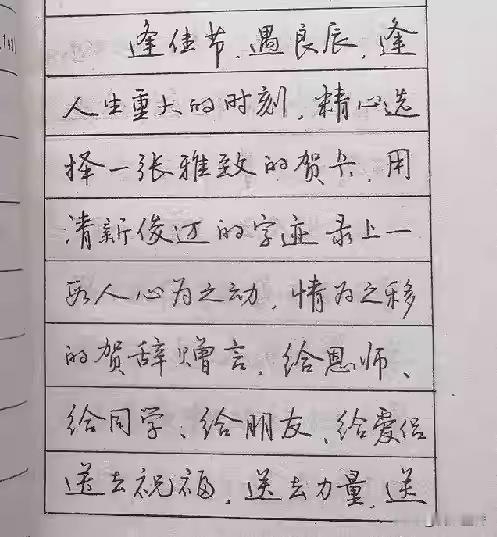 逢佳节、遇良辰，逢
人生重大的时刻，精心选
择一张雅致的贺卡，用
清新俊迈的字迹录上一
段人心为之动，情为之移
的贺辞赠言，给恩师、
给同学、给朋友、给爱侣
送去祝福，送去力量，送